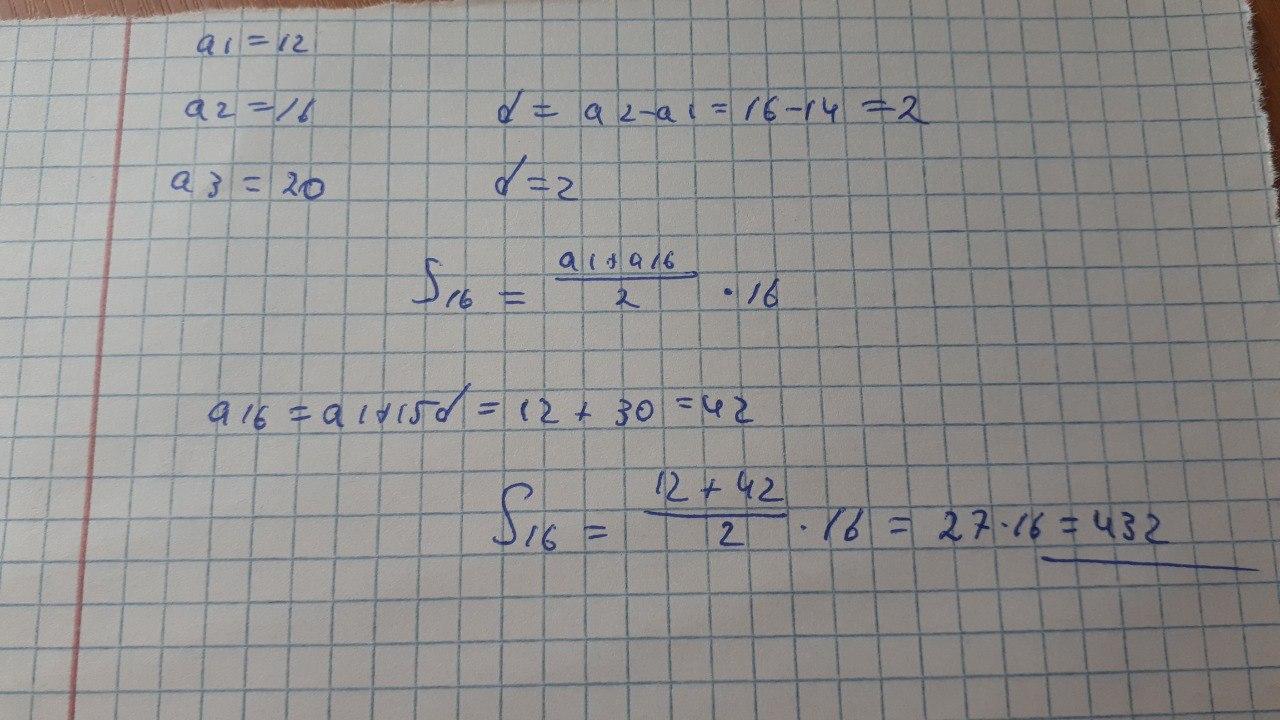 a1 = 12
a2 = 16 d = a2-a1 = 16-14 = 2
a3 = 20 d = 2
S16 = a1+a16 / 2 · 16
a16 = a1+15d = 12 + 30 = 42
S16 = 12 + 42 / 2 · 16 = 27·16 = 432